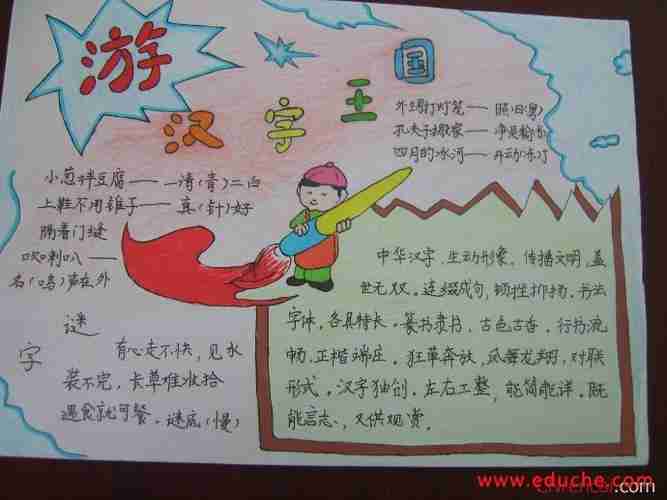 游
汉字王国
外甥打灯笼——照旧(舅)
孔夫子搬家——净是输(书)
四月的冰河——开动(冻)了
小葱拌豆腐——一清(青)二白
上鞋不用锥子——真(针)好
隔着门缝
吹喇叭——
名(鸣)声在外
字谜
有心走不快,见水
装不完,卡单难收拾
遇食就可餐。谜底(慢)
中华汉字,生动形象、传播文明,盖
世无双。连缀成句,顿挫抑扬。书法
字体,各具特长。篆书隶书,古色古香。行书流
畅,正楷端庄。狂草奔放,凤舞龙翔,对联
形式。汉字独创。左右工整,能简能详。既
能言志、又供观赏。
www.eduche.com